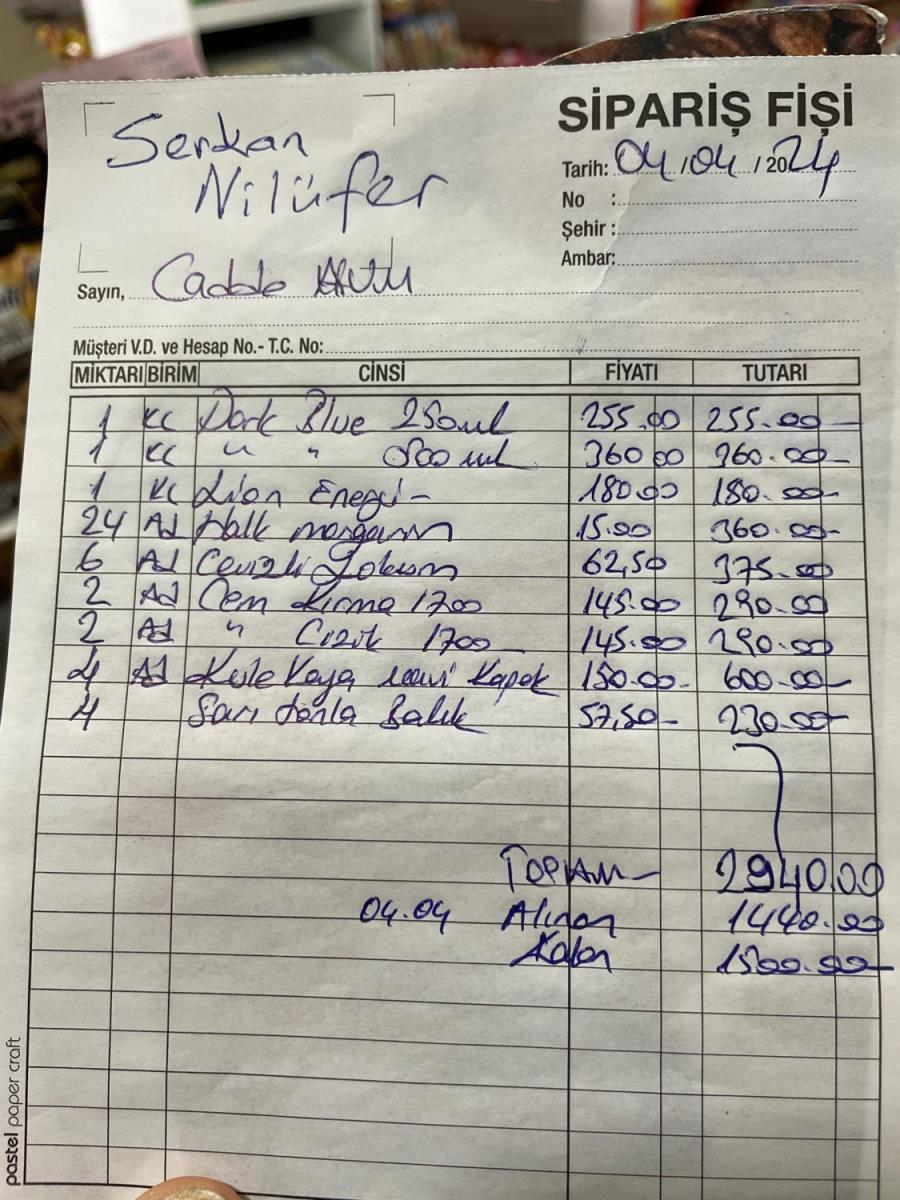 SİPARİŞ FİŞİ
Serkan
Nilüfer
Tarih: 04/04/2024
No :
Şehir :
Ambar:
Sayın, Cadde
Müşteri V.D. ve Hesap No.- T.C. No:
MİKTARI BİRİM CİNSİ FİYATI TUTARI
1 KL Dark Blue 250 ml 255.00 255.00
1 KL " " 360 00 360.00
1 KL Lion Energi 180.00 180.00
24 Ad Halk margarin 15.00 360.00
6 Ad Cevizli Lokum 62,50 375.00
2 Ad Cem Kırma 1700 145.00 290.00
2 Ad " Çizik 1700 145.00 290.00
4 Ad Kule Kaya mavi Kapak 150.00 600.00
4 Sarı tonla Balık 57,50 230.00
TOPLAM 2940.00
04.04 Alınan 1440.00
Kalan 1500.00
pastel paper craft